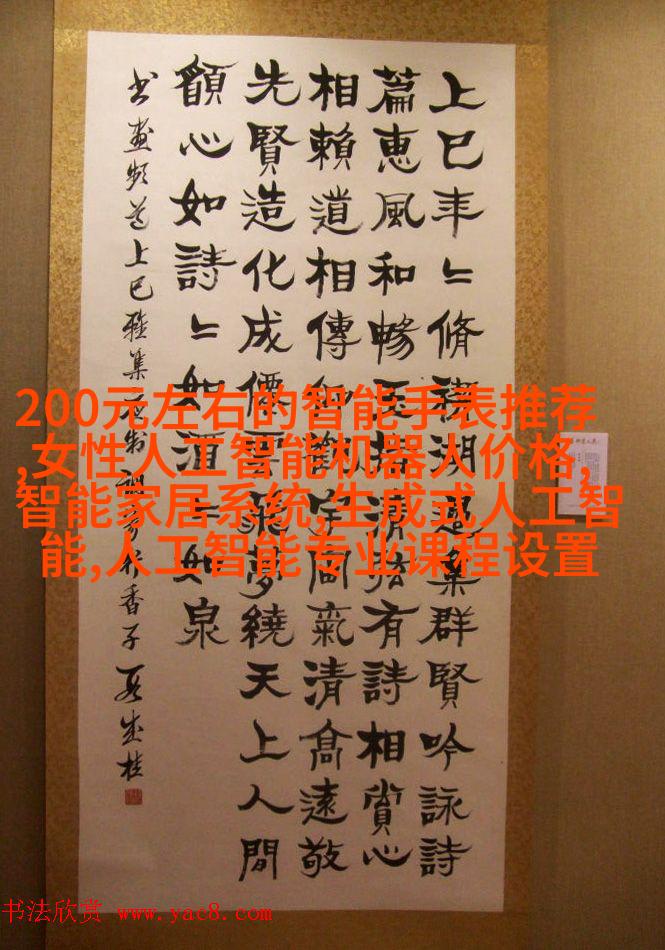 上巳年〻脩禊湖邊集群賢吟詠詩
篇惠風和暢揚清有詩相賞心
相賴道相傳同氣清高遠敬
先賢造化成僊夢繞天上人間
願心如詩〻如酒〻如泉
上巳雅集香子
200元左右的智能手表推荐
,女性人工智能机器人价格,
智能家居系统,生成式人工智
能,人工智能专业课程设置
书法欣赏 www.yac8.com